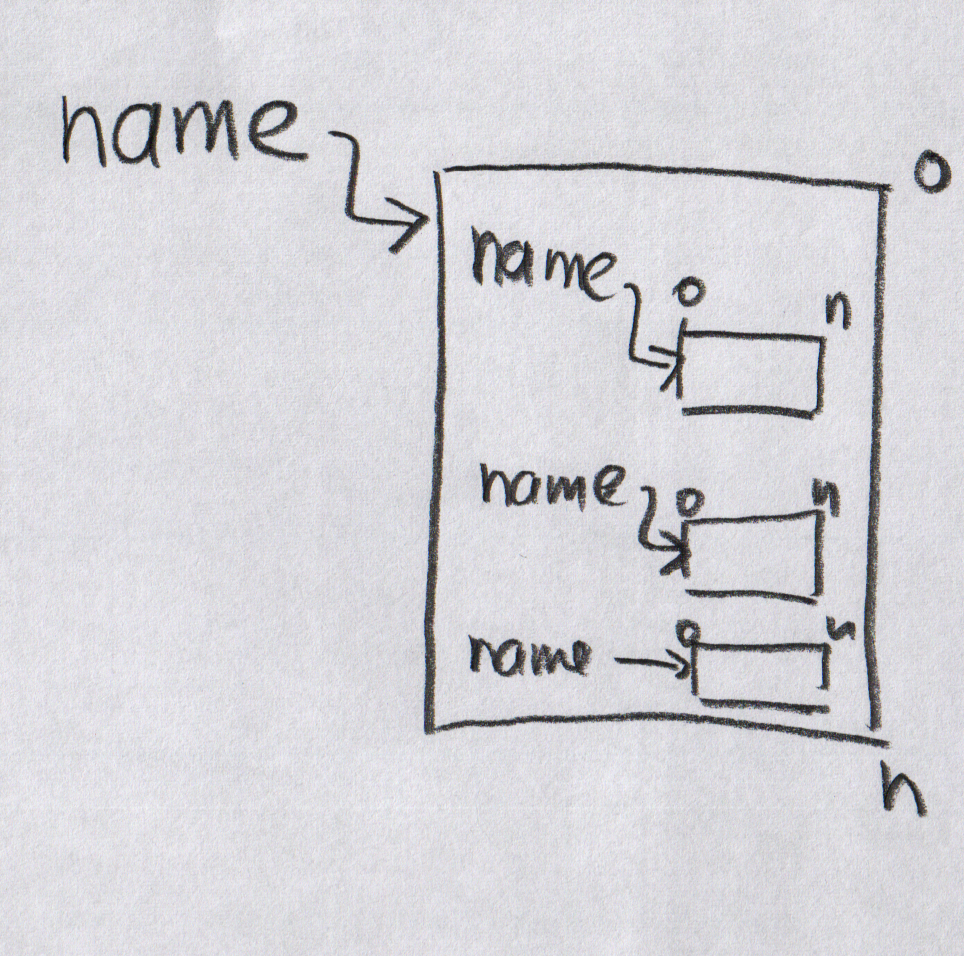 name
o
name
o n
name
o n
name
o n
n